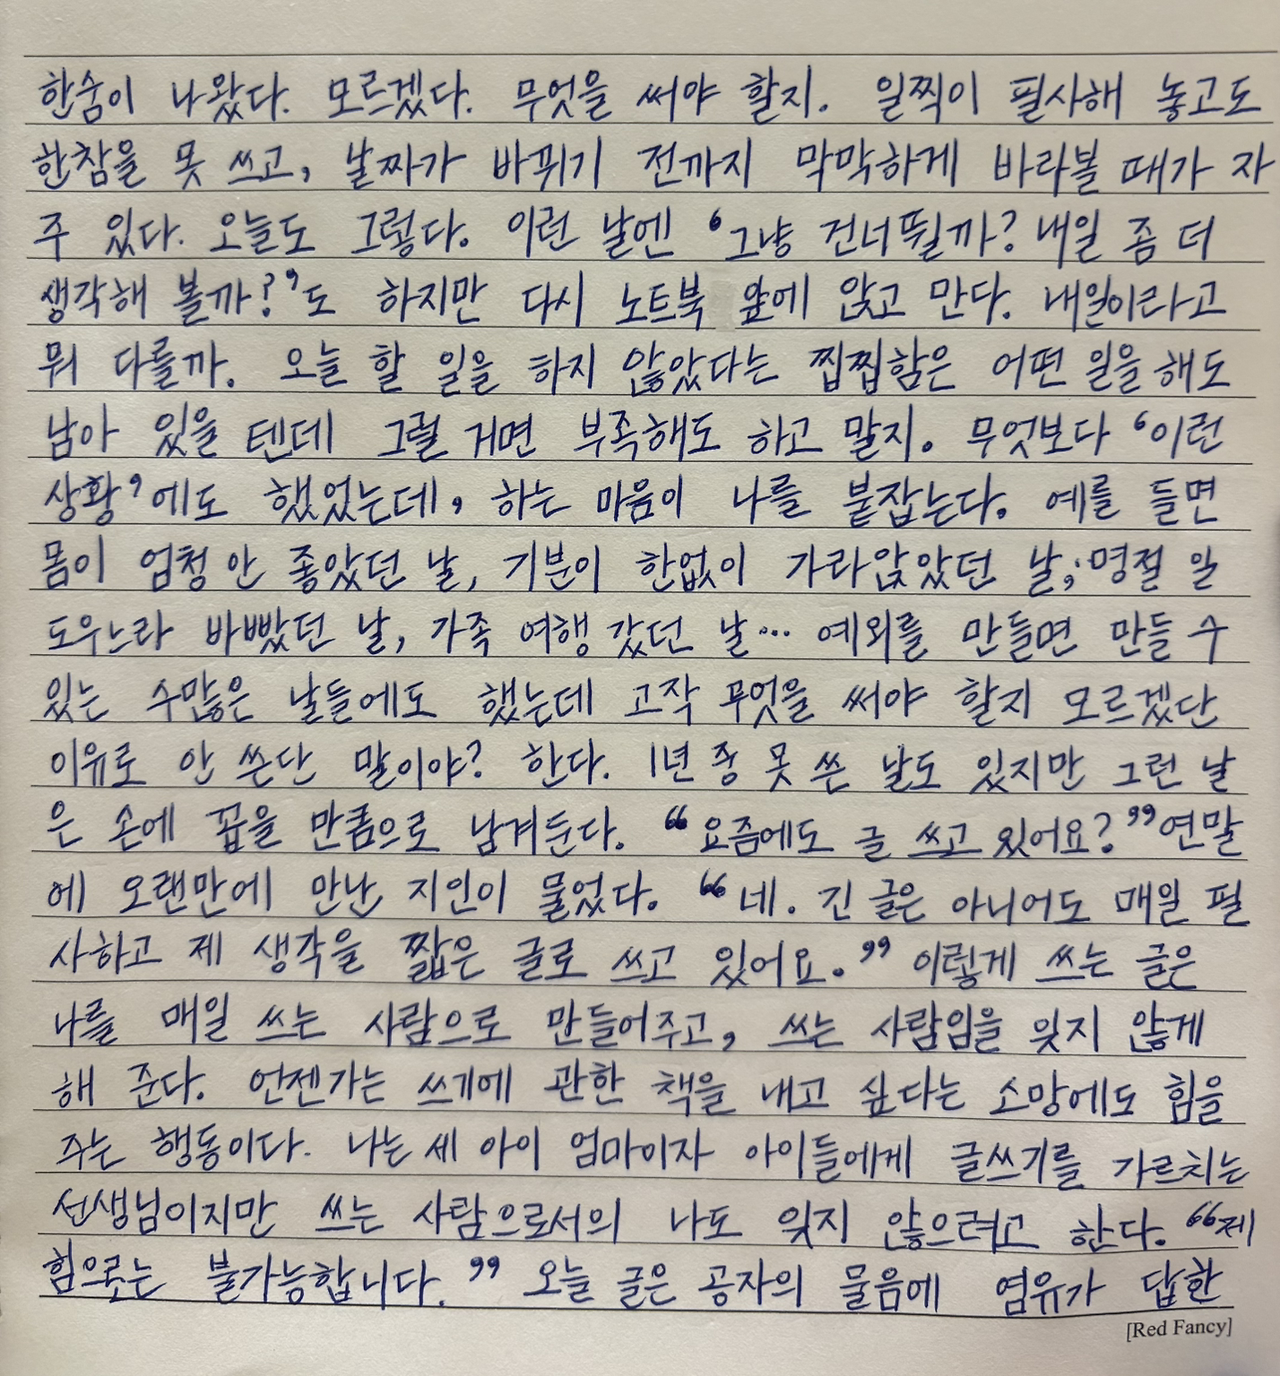 한숨이 나왔다. 모르겠다. 무엇을 써야 할지. 일찍이 필사해 놓고도
한참을 못 쓰고, 날짜가 바뀌기 전까지 막막하게 바라볼 때가 자
주 있다. 오늘도 그렇다. 이런 날엔 ‘그냥 건너뛸까? 내일 좀 더
생각해 볼까?’도 하지만 다시 노트북 앞에 앉고 만다. 내일이라고
뭐 다를까. 오늘 할 일을 하지 않았다는 찝찝함은 어떤 일을 해도
남아 있을 텐데 그럴 거면 부족해도 하고 말지. 무엇보다 ‘이런
상황’에도 했었는데, 하는 마음이 나를 붙잡는다. 예를 들면
몸이 엄청 안 좋았던 날, 기분이 한없이 가라앉았던 날, 명절 일
도우느라 바빴던 날, 가족 여행 갔던 날… 예외를 만들면 만들 수
있는 수많은 날들에도 했는데 고작 무엇을 써야 할지 모르겠단
이유로 안 쓴단 말이야? 한다. 1년 중 못 쓴 날도 있지만 그런 날
은 손에 꼽을 만큼으로 남겨둔다. “요즘에도 글 쓰고 있어요?” 연말
에 오랜만에 만난 지인이 물었다. “네. 긴 글은 아니어도 매일 필
사하고 제 생각을 짧은 글로 쓰고 있어요.” 이렇게 쓰는 글은
나를 매일 쓰는 사람으로 만들어주고, 쓰는 사람임을 잊지 않게
해 준다. 언젠가는 쓰기에 관한 책을 내고 싶다는 소망에도 힘을
주는 행동이다. 나는 세 아이 엄마이자 아이들에게 글쓰기를 가르치는
선생님이지만 쓰는 사람으로서의 나도 잊지 않으려고 한다. “제
힘으로는 불가능합니다.” 오늘 글은 공자의 물음에 염유가 답한
[Red Fancy]